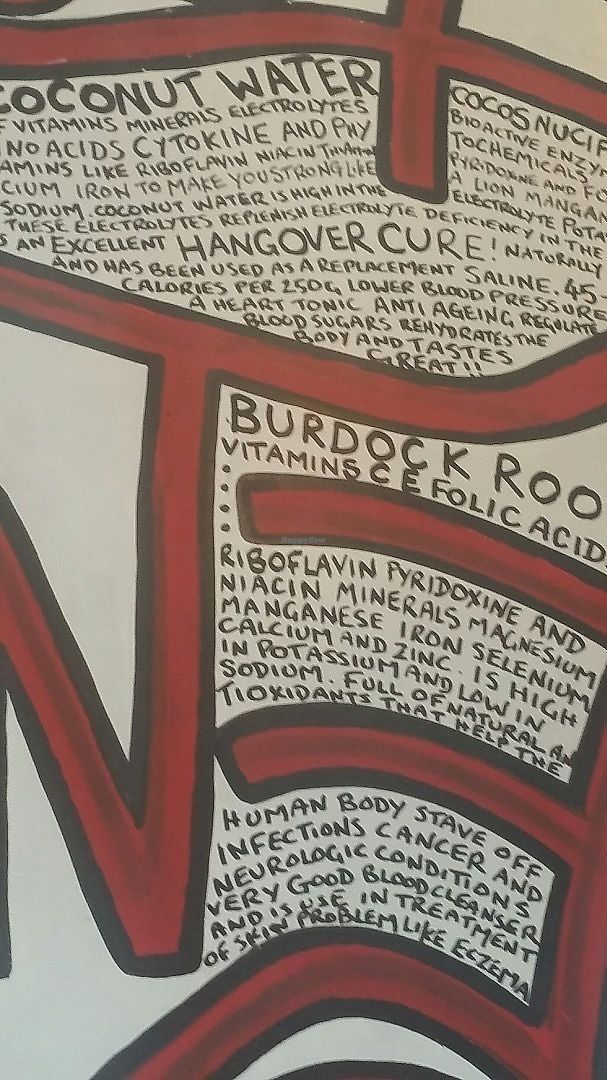 COCONUT WATER
F VITAMINS MINERALS ELECTROLYTES
NO ACIDS CYTOKINE AND PHY
AMINS LIKE RIBOFLAVIN NIACIN THIAMIN
CIUM IRON TO MAKE YOU STRONG LIKE
SODIUM. COCONUT WATER IS HIGH IN THE
COCOS NUCIF
BIOACTIVE ENZY
TOCHEMICALS
PYRIDOXINE AND FO
A LION MANGAN
ELECTROLYTE POTA
THESE ELECTROLYTES REPLENISH ELECTROLYTE DEFICIENCY IN THE
S AN EXCELLENT HANGOVER CURE! NATURALLY
AND HAS BEEN USED AS A REPLACEMENT SALINE. 45
CALORIES PER 250G, LOWER BLOOD PRESSURE
A HEART TONIC ANTI AGEING, REGULATE
BLOOD SUGARS REHYDRATES THE
BODY AND TASTES
GREAT!!
BURDOCK ROO
VITAMINS C E FOLIC ACID
HappyCow
RIBOFLAVIN PYRIDOXINE AND
NIACIN MINERALS MAGNESIUM
MANGANESE IRON SELENIUM
CALCIUM AND ZINC. IS HIGH
IN POTASSIUM AND LOW IN
SODIUM. FULL OF NATURAL AN
TIOXIDANTS THAT HELP THE
HUMAN BODY STAVE OFF
INFECTIONS CANCER AND
NEUROLOGIC CONDITIONS
VERY GOOD BLOOD CLEANSER
AND IS USE IN TREATMENT
OF SKIN PROBLEM LIKE ECZEMA